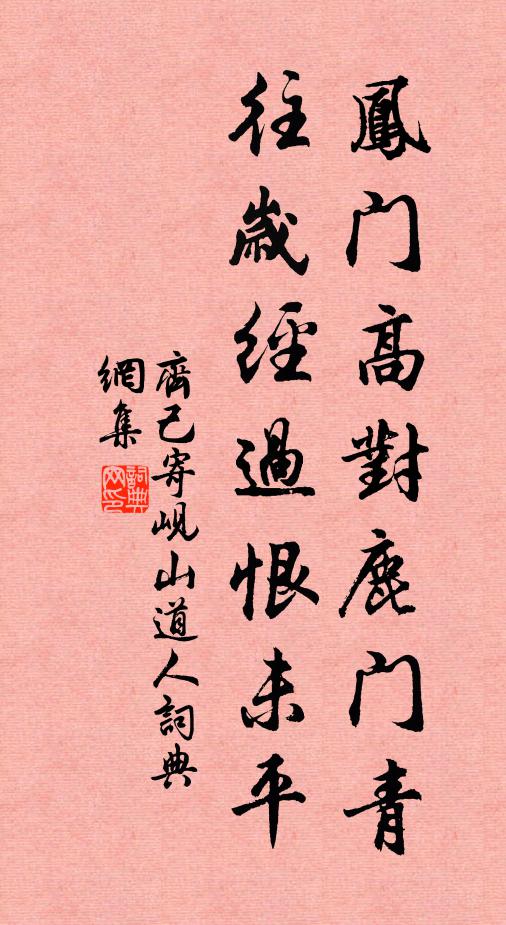 鳳門高對鹿門青
往歲經過恨未平
齊己寄峴山道人詞典
網集
詞典網印